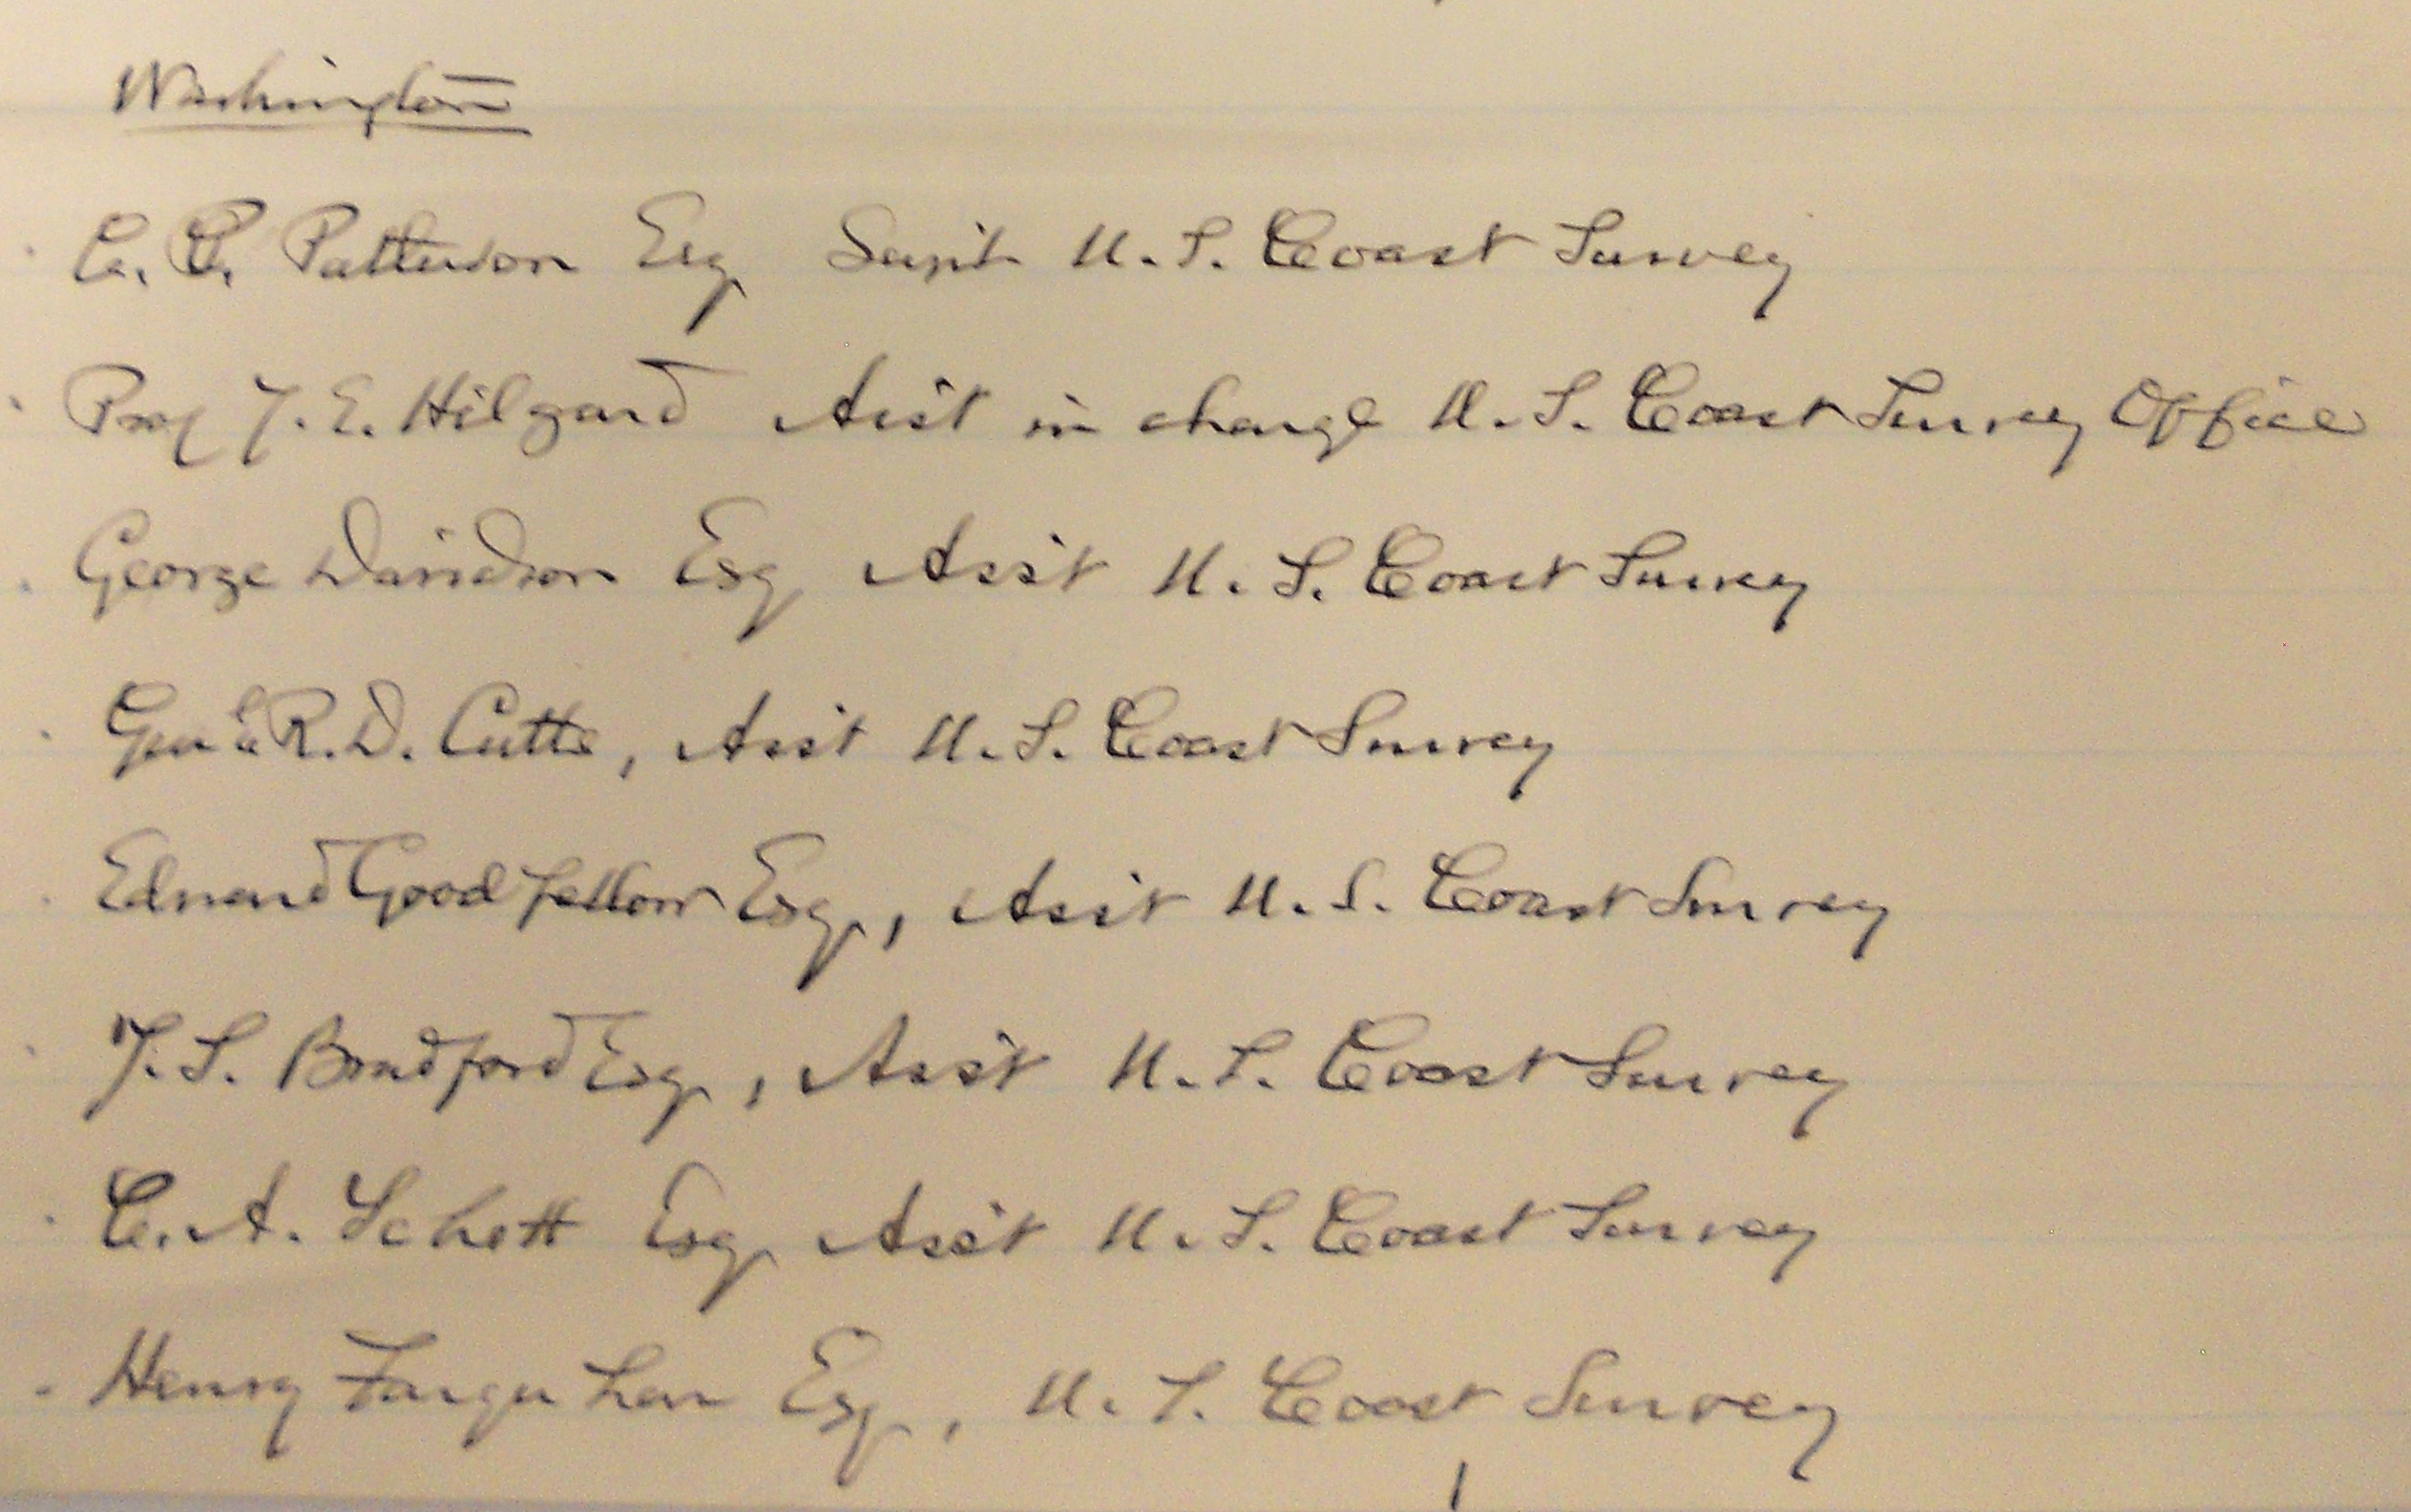 Washington
C. P. Patterson Esq Supt U.S. Coast Survey
Prof J. E. Hilgard Asst in charge U.S. Coast Survey Office
George Davidson Esq Asst U.S. Coast Survey
Gen'l R. D. Cutts, Asst U.S. Coast Survey
Edward Goodfellow Esq, Asst U.S. Coast Survey
J. S. Bradford Esq, Asst U.S. Coast Survey
C. A. Schott Esq Asst U.S. Coast Survey
Henry Farquhar Esq, U.S. Coast Survey